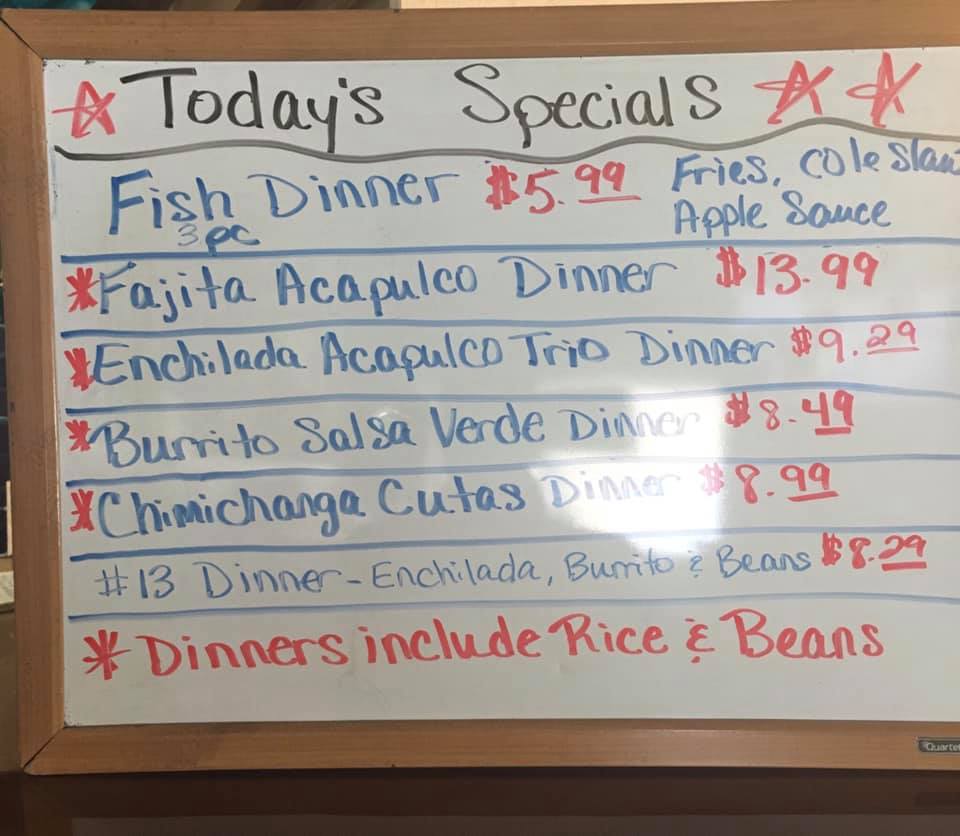 Today's Specials
Fish Dinner $5.99 Fries, Cole Slaw
3 pc Apple Sauce
*Fajita Acapulco Dinner $13.99
*Enchilada Acapulco Trio Dinner $9.29
*Burrito Salsa Verde Dinner $8.49
*Chimichanga Cutas Dinner $8.99
#13 Dinner - Enchilada, Burrito & Beans $8.29
* Dinners include Rice & Beans
Quartet